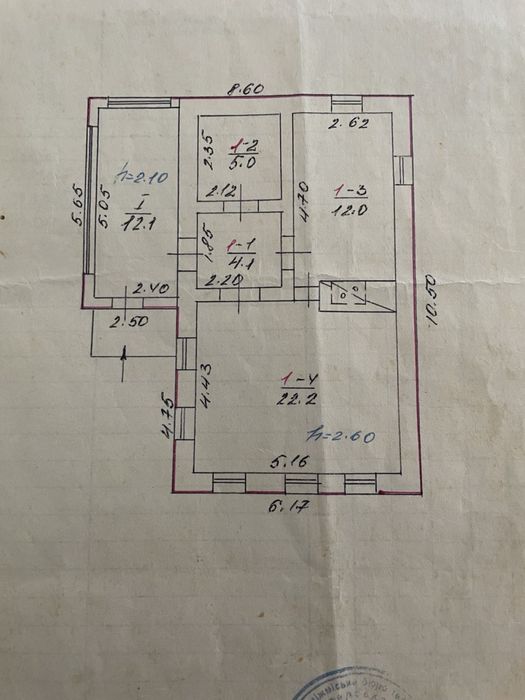 8.60
2.62
2.35
1-2
5.0
2.12
h=2.10
I
12.1
5.65
5.05
4.70
1-3
12.0
1.85
1-1
4.1
2.20
2.40
2.50
10.50
4.43
4.75
1-4
22.2
h=2.60
5.16
6.17
бюро